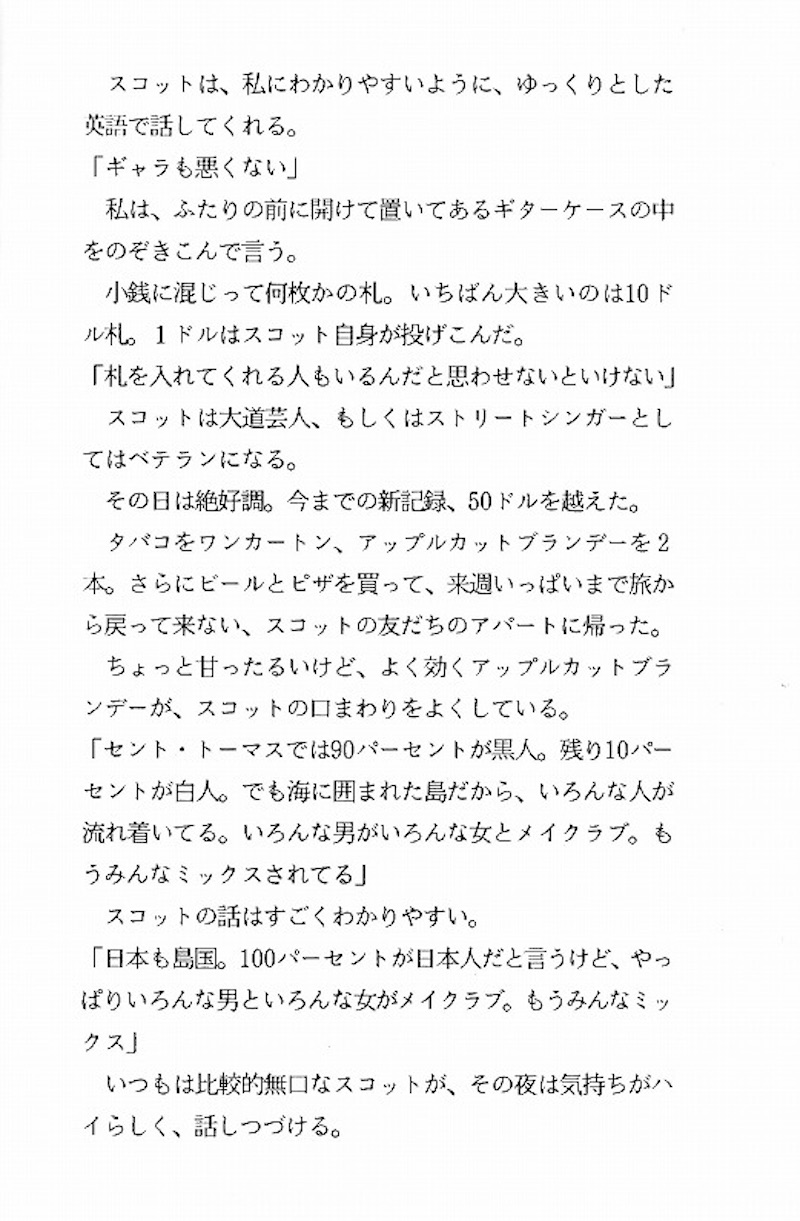 スコットは、私にわかりやすいように、ゆっくりとした
英語で話してくれる。
「ギャラも悪くない」
私は、ふたりの前に開けて置いてあるギターケースの中
をのぞきこんで言う。
小銭に混じって何枚かの札。いちばん大きいのは10ド
ル札。1ドルはスコット自身が投げこんだ。
「札を入れてくれる人もいるんだと思わせないといけない」
スコットは大道芸人、もしくはストリートシンガーとし
てはベテランになる。
その日は絶好調。今までの新記録、50ドルを越えた。
タバコをワンカートン、アップルカットブランデーを2
本。さらにビールとピザを買って、来週いっぱいまで旅か
ら戻って来ない、スコットの友だちのアパートに帰った。
ちょっと甘ったるいけど、よく効くアップルカットブラ
ンデーが、スコットの口まわりをよくしている。
「セント・トーマスでは90パーセントが黒人。残り10パー
セントが白人。でも海に囲まれた島だから、いろんな人が
流れ着いてる。いろんな男がいろんな女とメイクラブ。も
うみんなミックスされてる」
スコットの話はすごくわかりやすい。
「日本も島国。100パーセントが日本人だと言うけど、やっ
ぱりいろんな男といろんな女がメイクラブ。もうみんなミッ
クス」
いつもは比較的無口なスコットが、その夜は気持ちがハ
イらしく、話しつづける。